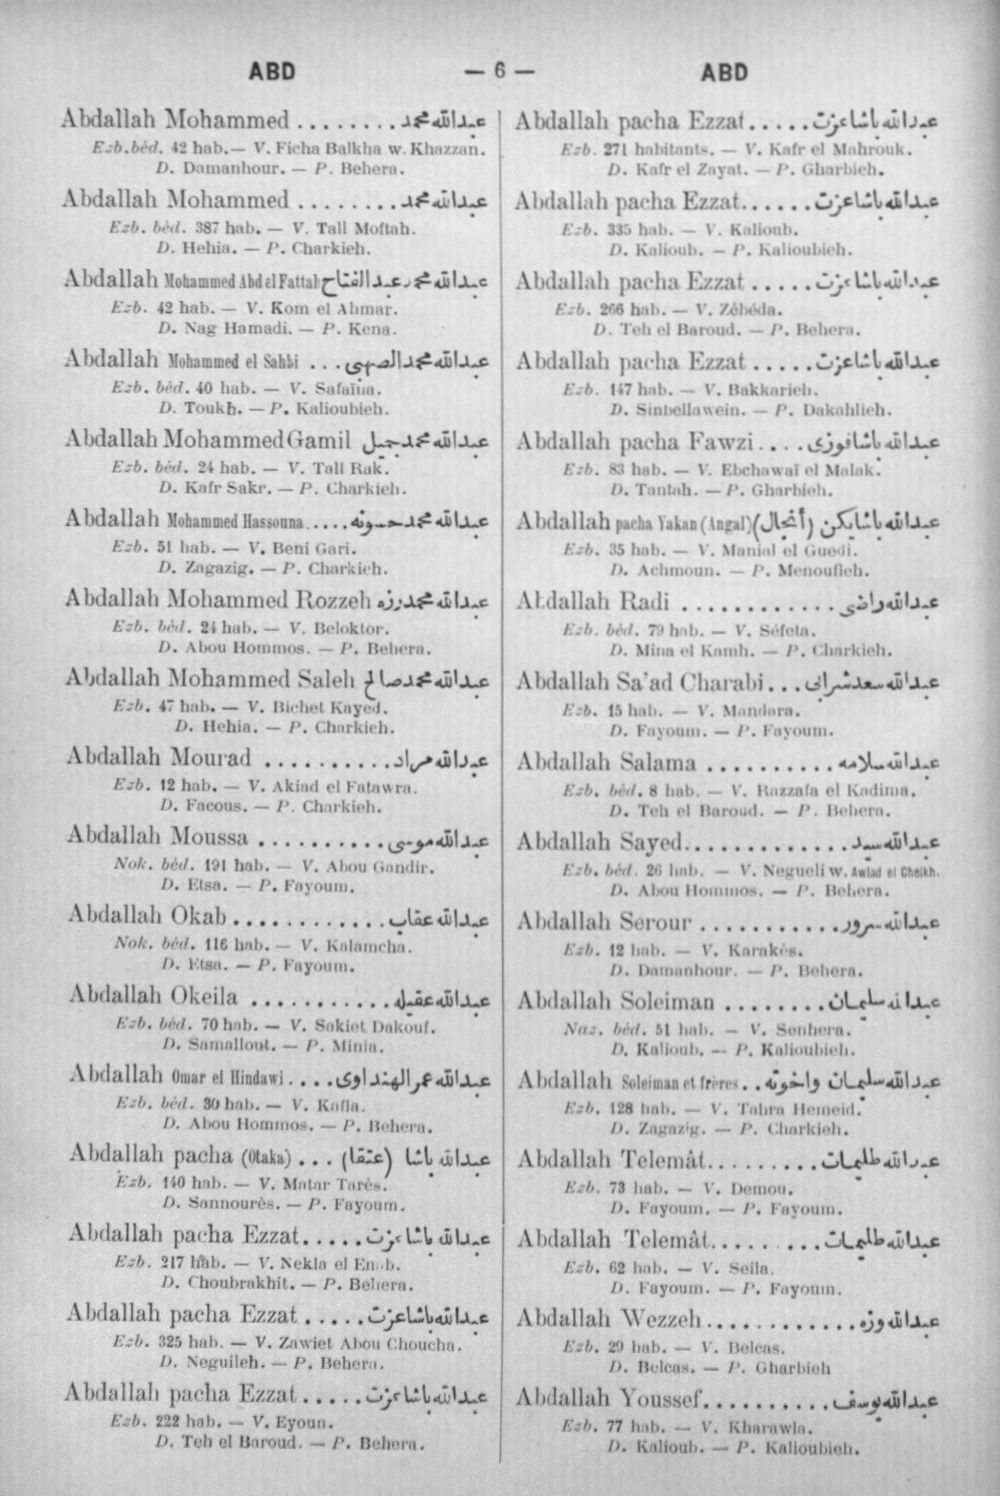 ABD — 6 — ABD
Abdallah Mohammed ........ عبدالله محمد
Ezb. béd. 42 hab.— V. Ficha Balkha w. Khazzan.
D. Damanhour. — P. Behera.
Abdallah Mohammed ........ عبدالله محمد
Ezb. béd. 387 hab. — V. Tall Moftah.
D. Hehia. — P. Charkieh.
Abdallah Mohammed Abd el Fattah عبدالله محمد عبد الفتاح
Ezb. 42 hab. — V. Kom el Ahmar.
D. Nag Hamadi. — P. Kena.
Abdallah Mohammed el Sahbi ... عبدالله محمد الصهبى
Ezb. béd. 40 hab. — V. Safaïna.
D. Toukh. — P. Kalioubieh.
Abdallah Mohammed Gamil عبدالله محمد جميل
Ezb. béd. 24 hab. — V. Tall Rak.
D. Kafr Sakr. — P. Charkieh.
Abdallah Mohammed Hassouna..... عبدالله محمد حسونه
Ezb. 51 hab. — V. Beni Gari.
D. Zagazig. — P. Charkieh.
Abdallah Mohammed Rozzeh عبدالله محمد رزه
Ezb. béd. 24 hab. — V. Beloktor.
D. Abou Hommos. — P. Behera.
Abdallah Mohammed Saleh عبدالله محمد صالح
Ezb. 47 hab. — V. Bichet Kayed.
D. Hehia. — P. Charkieh.
Abdallah Mourad .......... عبدالله مراد
Ezb. 12 hab. — V. Akiad el Fatawra.
D. Facous. — P. Charkieh.
Abdallah Moussa .......... عبدالله موسى
Nok. béd. 191 hab. — V. Abou Gandir.
D. Etsa. — P. Fayoum.
Abdallah Okab ............ عبدالله عقاب
Nok. béd. 116 hab. — V. Kalamcha.
D. Etsa. — P. Fayoum.
Abdallah Okeila ........... عبدالله عقيله
Ezb. béd. 70 hab. — V. Sakiet Dakouf.
D. Samallout. — P. Minia.
Abdallah Omar el Hindawi .... عبدالله عمر الهنداوى
Ezb. béd. 30 hab. — V. Kafla.
D. Abou Hommos. — P. Behera.
Abdallah pacha (Otaka) ... عبدالله باشا (عتقا)
Ezb. 140 hab. — V. Matar Tarès.
D. Sannourès. — P. Fayoum.
Abdallah pacha Ezzat..... عبدالله باشا عزت
Ezb. 217 hab. — V. Nekla el Enab.
D. Choubrakhit. — P. Behera.
Abdallah pacha Ezzat ..... عبدالله باشا عزت
Ezb. 325 hab. — V. Zawiet Abou Choucha.
D. Neguileh. — P. Behera.
Abdallah pacha Ezzat ..... عبدالله باشا عزت
Ezb. 222 hab. — V. Eyoun.
D. Teh el Baroud. — P. Behera.
Abdallah pacha Ezzat..... عبدالله باشا عزت
Ezb. 271 habitants. — V. Kafr el Mahrouk.
D. Kafr el Zayat. — P. Gharbieh.
Abdallah pacha Ezzat...... عبدالله باشا عزت
Ezb. 335 hab. — V. Kalioub.
D. Kalioub. — P. Kalioubieh.
Abdallah pacha Ezzat ..... عبدالله باشا عزت
Ezb. 266 hab. — V. Zébéda.
D. Teh el Baroud. — P. Behera.
Abdallah pacha Ezzat ..... عبدالله باشا عزت
Ezb. 147 hab. — V. Bakkarieh.
D. Sinbellawein. — P. Dakahlieh.
Abdallah pacha Fawzi.... عبدالله باشا فوزى
Ezb. 83 hab. — V. Ebchawaï el Malak.
D. Tantah. — P. Gharbieh.
Abdallah pacha Yakan (Angal) عبدالله باشا يكن (أنجال)
Ezb. 35 hab. — V. Manial el Guedi.
D. Achmoun. — P. Menoufieh.
Abdallah Radi ............ عبدالله راضى
Ezb. béd. 79 hab. — V. Séfeta.
D. Mina el Kamh. — P. Charkieh.
Abdallah Sa'ad Charabi... عبدالله سعد شرابى
Ezb. 15 hab. — V. Mandara.
D. Fayoum. — P. Fayoum.
Abdallah Salama .......... عبدالله سلامه
Ezb. béd. 8 hab. — V. Razzafa el Kadima.
D. Teh el Baroud. — P. Behera.
Abdallah Sayed............. عبدالله سيد
Ezb. béd. 26 hab. — V. Negueli w. Awlad el Cheikh.
D. Abou Hommos. — P. Behera.
Abdallah Serour ........... عبدالله سرور
Ezb. 12 hab. — V. Karakès.
D. Damanhour. — P. Behera.
Abdallah Soleiman ........ عبدالله سليمان
Naz. béd. 51 hab. — V. Senhera.
D. Kalioub. — P. Kalioubieh.
Abdallah Soleiman et frères.. عبدالله سليمان واخوته
Ezb. 128 hab. — V. Tahra Hemeid.
D. Zagazig. — P. Charkieh.
Abdallah Telemât......... عبدالله طليمات
Ezb. 73 hab. — V. Demou.
D. Fayoum. — P. Fayoum.
Abdallah Telemât......... عبدالله طليمات
Ezb. 62 hab. — V. Seila.
D. Fayoum. — P. Fayoum.
Abdallah Wezzeh............ عبدالله وزه
Ezb. 29 hab. — V. Belcas.
D. Belcas. — P. Gharbieh
Abdallah Youssef.......... عبدالله يوسف
Ezb. 77 hab. — V. Kharawla.
D. Kalioub. — P. Kalioubieh.